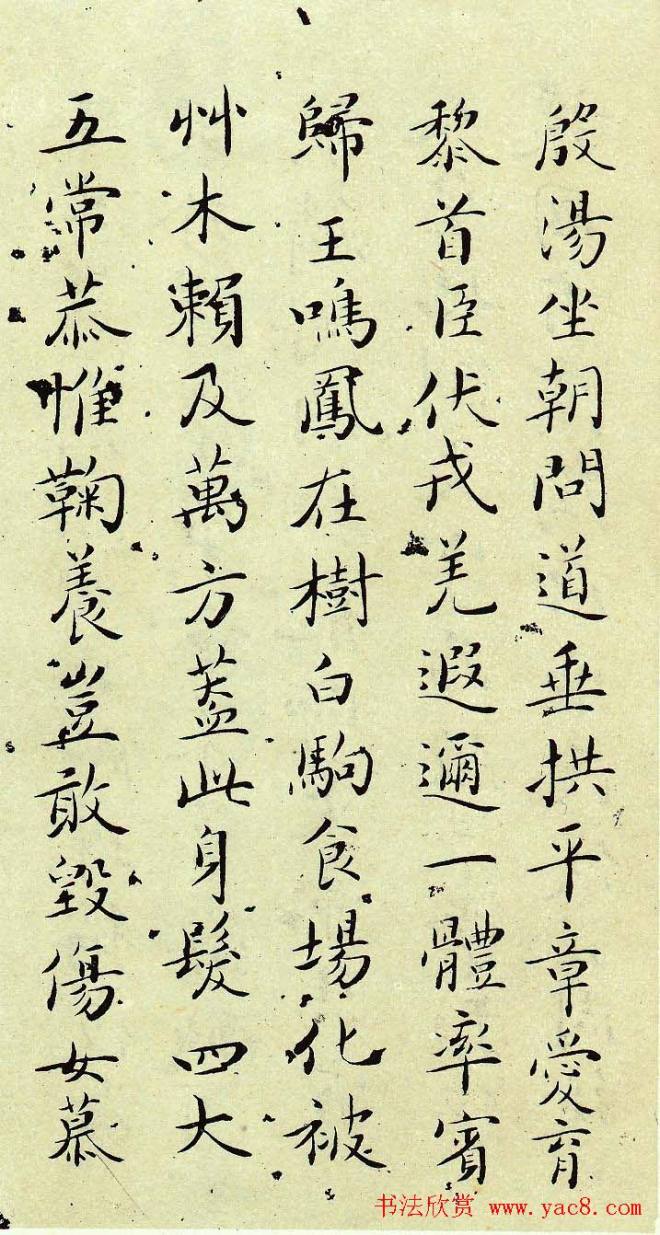 殷湯坐朝問道垂拱平章愛育
黎首臣伏戎羌遐邇一體率賓
歸王鳴鳳在樹白駒食場化被
艸木賴及萬方蓋此身髮四大
五常恭惟鞠養豈敢毀傷女慕
书法欣赏 www.yac8.com